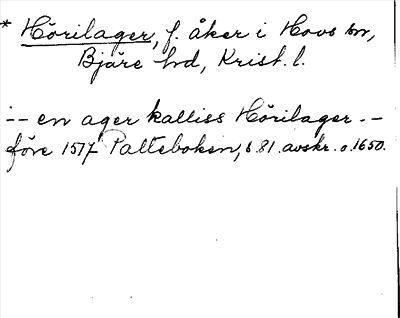 * Hörilager, f. åker i Hovs sn,
Bjäre hd, Krist. l.
-- en ager kalliss Hörilager --
före 1517 Palteboken, s 81. avskr. o. 1650.